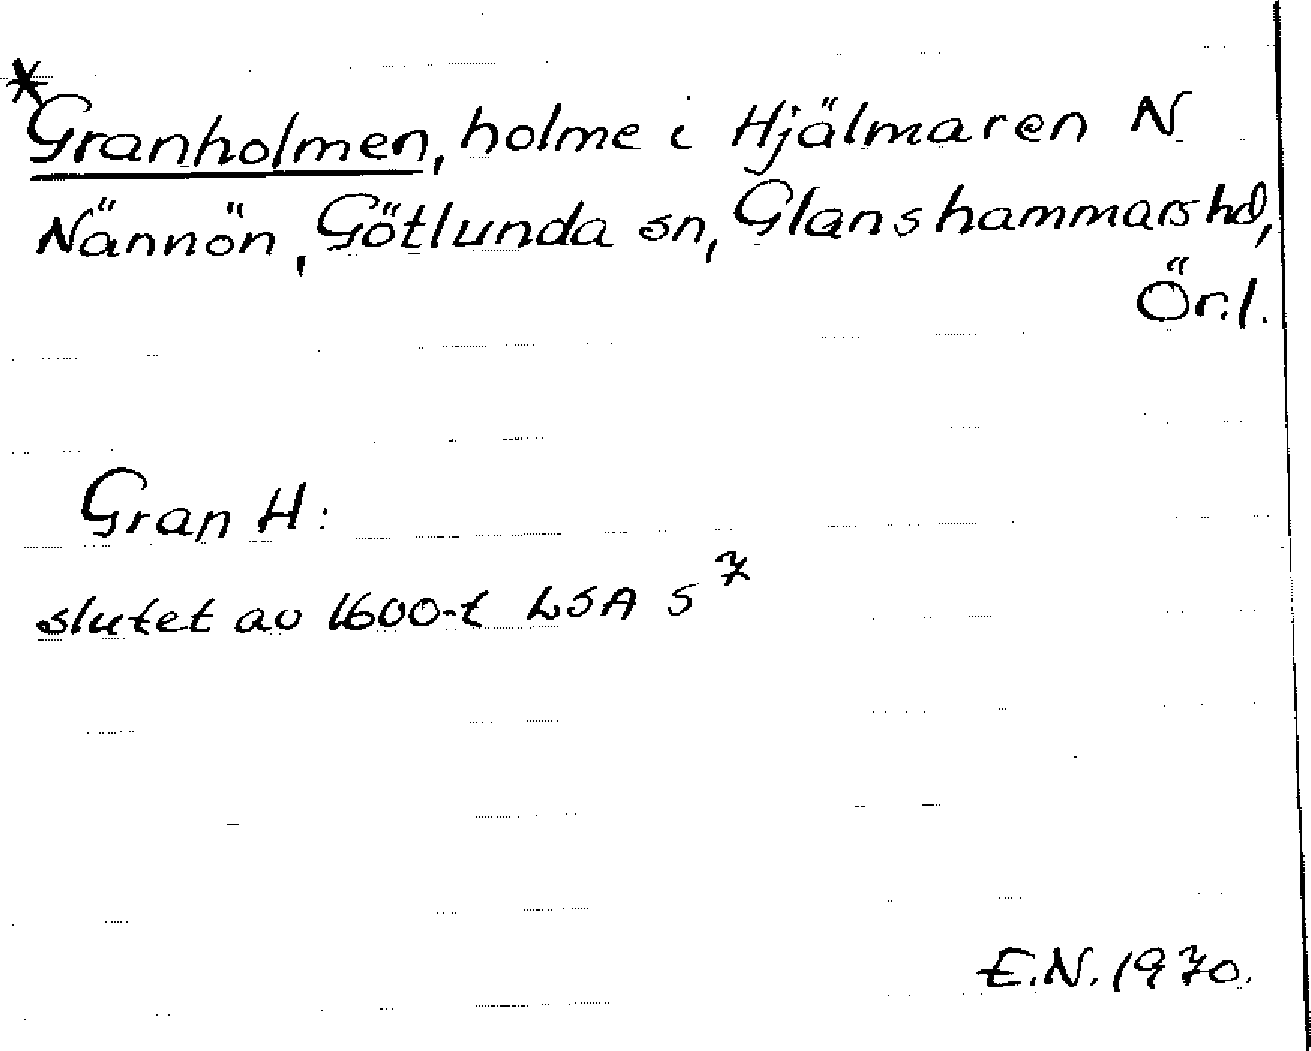 *Granholmen, holme i Hjälmaren N
Nännön, Götlunda sn, Glanshammars hd,
Ör.l.
Gran H:
slutet av 1600-t LSA S⁷
E.N. 1970.